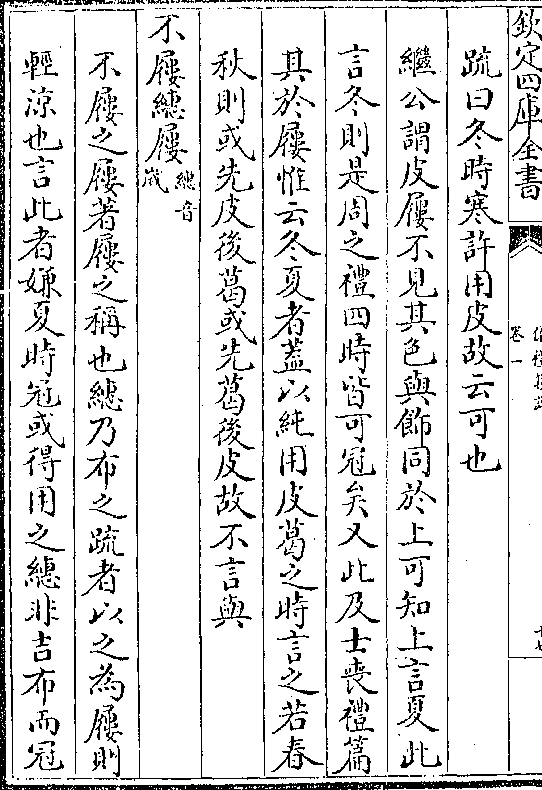 欽定四庫全書
卷一
疏曰冬時寒許用皮故云可也
繼公謂皮屨不見其色與飾同於上可知上言夏此
言冬則是周之禮四時皆可冠矣又此及士喪禮篇
其於屨惟云冬夏者蓋以純用皮葛之時言之若春
秋則或先皮後葛或先葛後皮故不言與
不屨繐屨繐音歲
不屨之屨著屨之稱也繐乃布之疏者以之為屨則
輕涼也言此者嫌夏時冠或得用之繐非吉布而冠